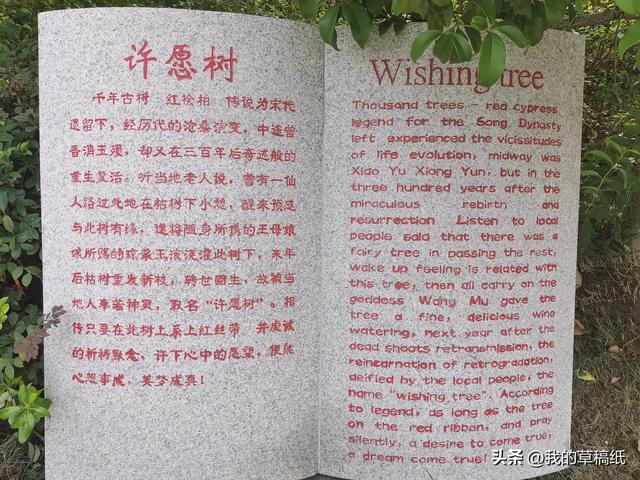 许愿树
千年古树 红桧柏 传说为宋代
遗留下，经历代的沧桑演变，中途曾
香消玉殒，却又在三百年后奇迹般的
重生复活。听当地老人说，曾有一仙
人路过此地在枯树下小憩，醒来预感
与此树有缘，遂将随身所携的王母娘
娘所赐的琼浆玉液浇灌此树下，来年
后枯树重发新枝，转世回生，故被当
地人奉若神灵，取名“许愿树”。相
传只要在此树上系上红丝带 并虔诚
的祈祷默念，许下心中的愿望，便能
心想事成，美梦成真！
Wishing tree
Thousand trees - red cypress
legend for the Song Dynasty
left experienced the vicissitudes
of life evolution, midway was
Xiao Yu Xiong Yun, but in the
three hundred years after the
miraculous rebirth and
resurrection Listen to local
people said that there was a
fairy tree in passing the rest,
wake up feeling is related with
this tree, then all carry on the
goddess Wang Mu gave the
tree a fine, delicious wine
watering, next year after the
dead shoots retransmission, the
reincarnation of retrogradation,
deified by the local people, the
name "wishing tree". According
to legend, as long as the tree
on the red ribbon, and pray
silently, a desire to come true,
a dream come true!
头条 @我的草稿纸